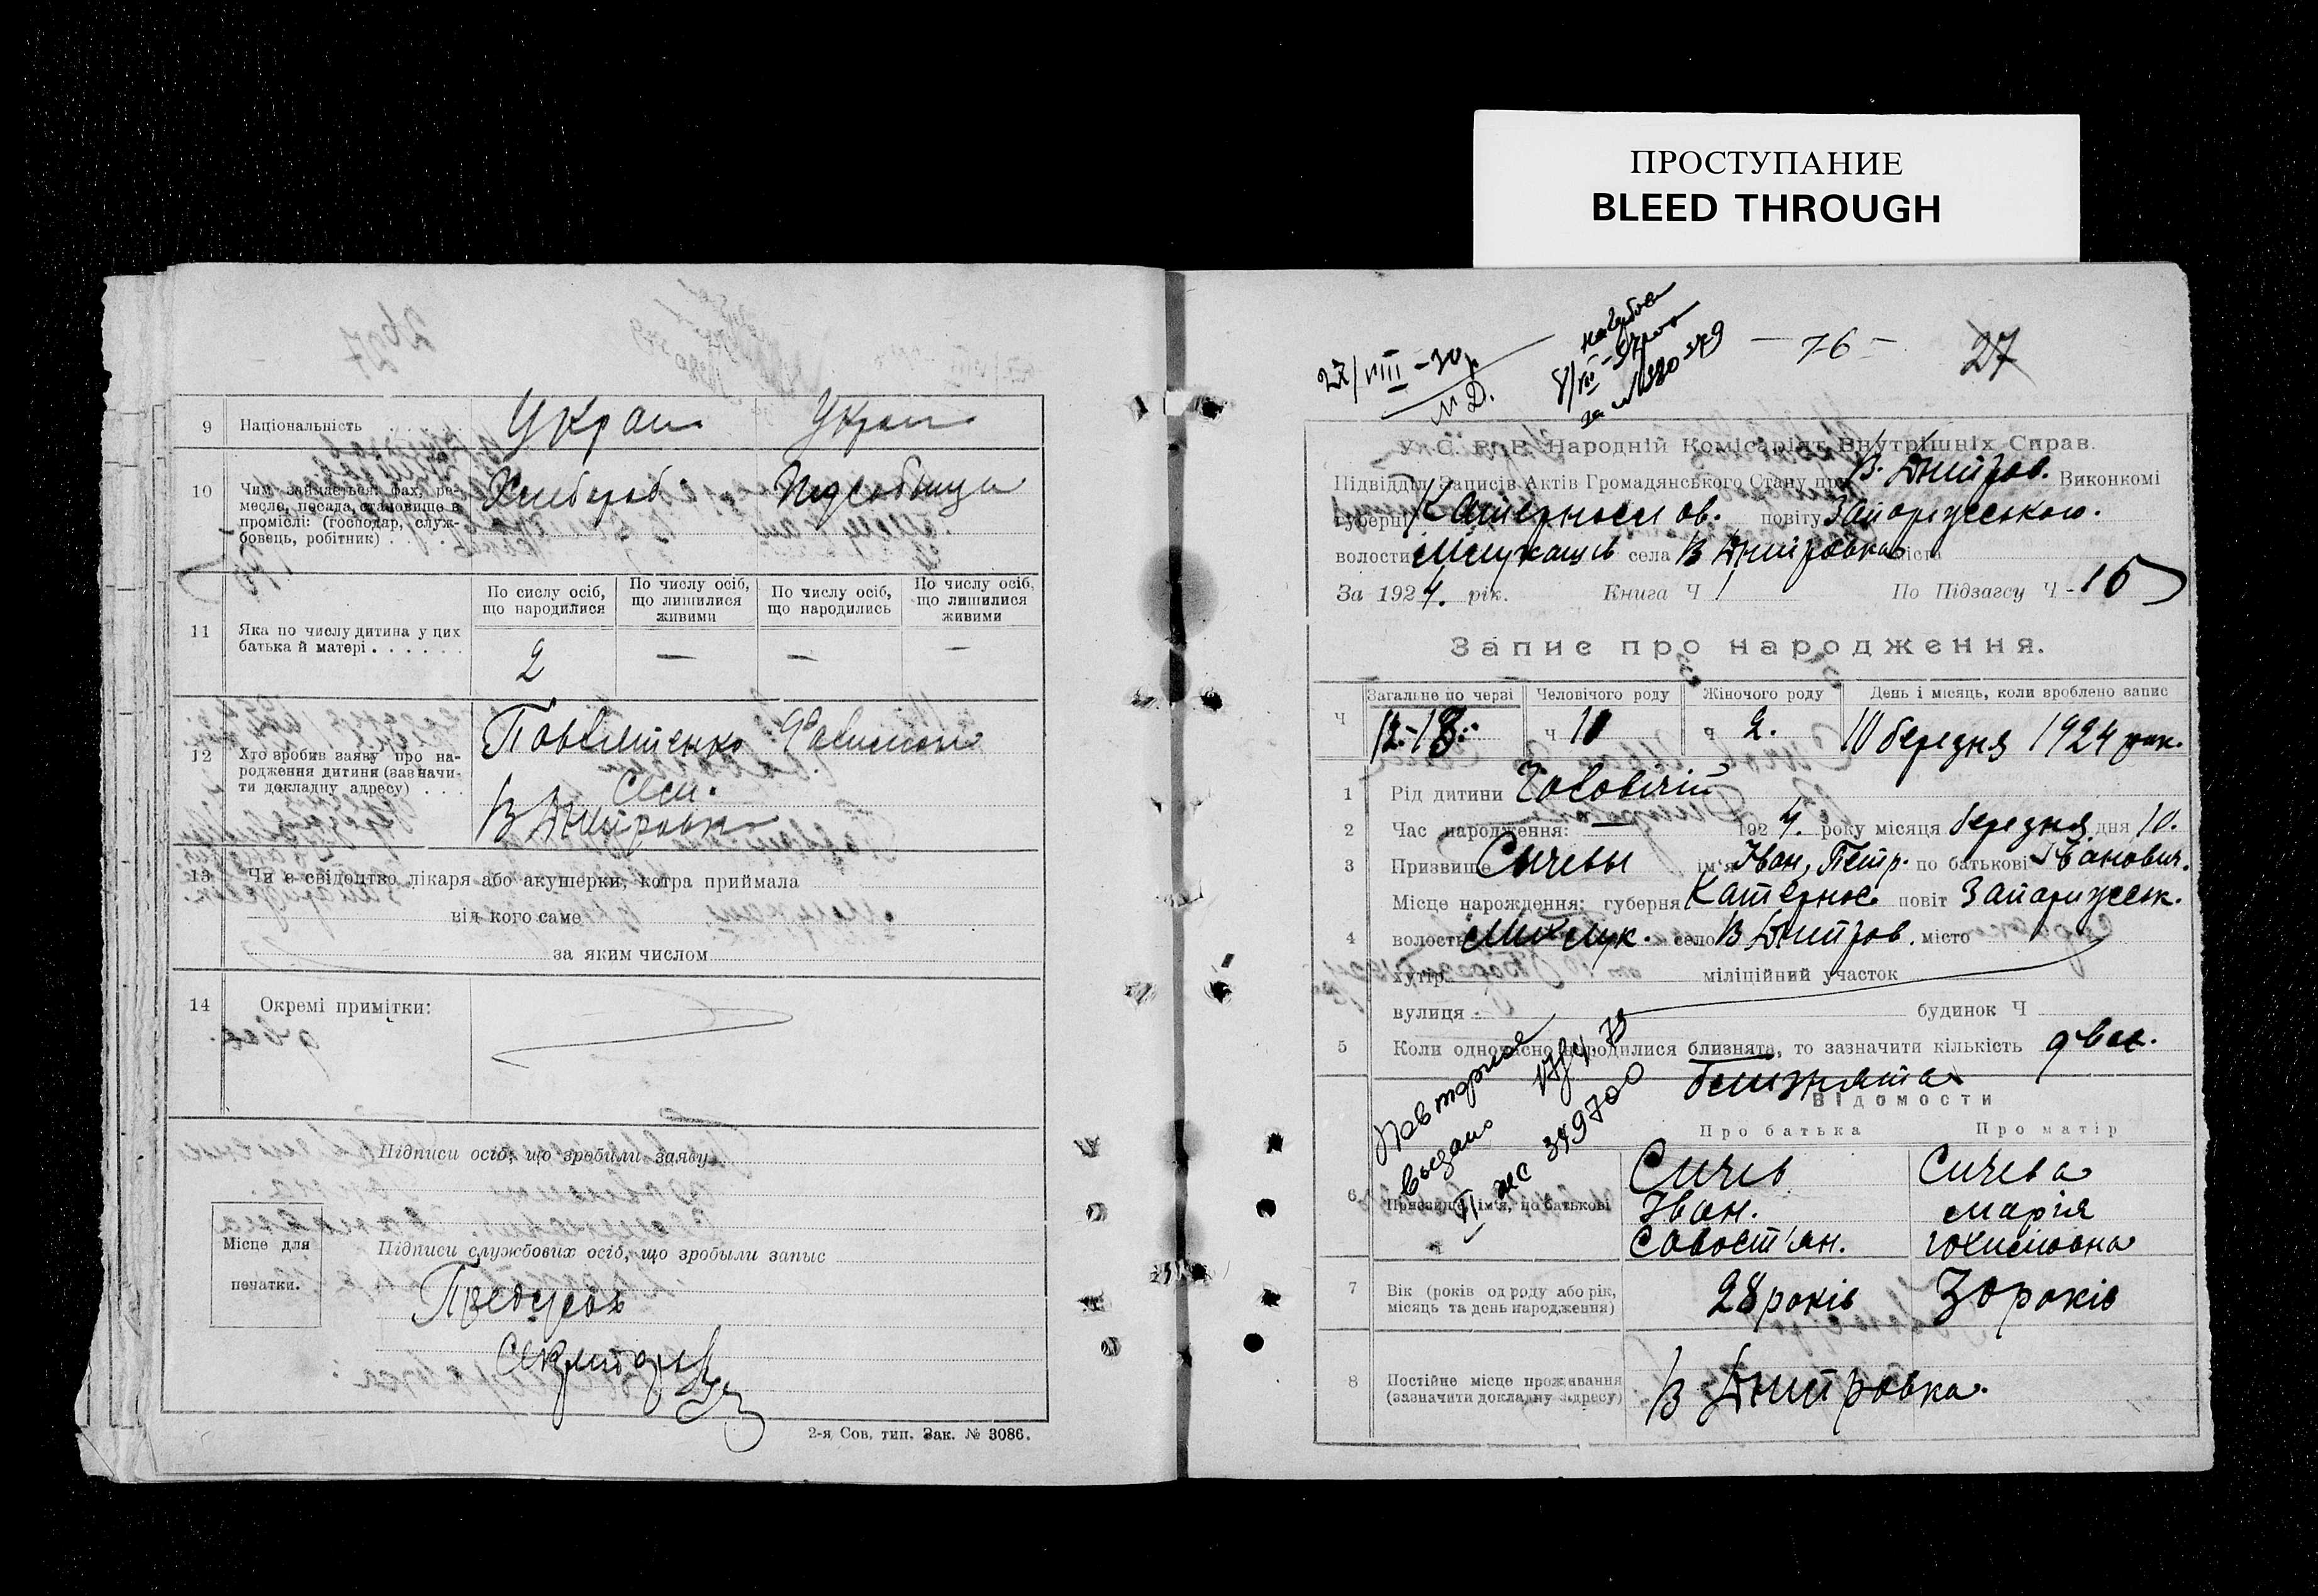 ПРОСТУПАНИЕ
BLEED THROUGH
9 Національність . . . . . Украї Украї
10 Чим займається: фах, ре-
месло, посада, становище в
промислі: (господар, служ-
бовець, робітник) . . . .
Хлебороб
11 Яка по числу дитина у цих
батька й матері . . . . . .
По сислу осіб,
що народилися
По числу осіб,
що лишилися
живими
По числу осіб,
що народились
По числу осіб,
що лишилися
живими
2 — — —
12 Хто зробив заяву про на-
родження дитини (зазначи-
ти докладну адресу) . . .
В Дмитровка
13 Чи є свідоцтво лікаря або акушерки, котра приймала
від кого саме
за яким числом
14 Окремі примітки:
Підписи осіб, що зробили заяву
Місце для
печатки.
Підписи службових осіб, що зробыли запыс
Предсідат
Секретарь
2-я Сов. тип. Зак. № 3086.
27/VIII–30р
М Д.
— 76 —
27
У. С. Р. Р. Народній Комісаріят Внутрішніх Справ.
Підвідділ Записів Актів Громадянського Стану при В. Дмитров. Виконкомі
губерні Катеринослов. повіту Запоріжського.
волости села В Дмитровка міста
За 1924. рік. Книга Ч 1 По Підзагсу Ч -15
Запис про народження.
Ч
Загальне по черзі
Человічого роду
Жіночого роду
День і місяць, коли зроблено запис
12-13. ч 11 ч 2. 10 березня 1924 рок.
1 Рід дитини Чоловічій
2 Час народження: — 1924. року місяця березня дня 10.
3 Призвище Сичевы ім'я Іван, Петр. по батькові Іванович.
Місце нарождення: губерня Катеринос. повіт Запоріжськ.
4 волость село В Дмитров. місто
хутір міліційний участок
вулиця будинок Ч
5 Коли одночасно народилися близнята, то зазначити кількість двое.
близнята
Повторное
выдано
349700
Відомости
Про батька Про матір
6 Призвище, ім'я, по батькові
Сичев Сичева
Іван. Марія
Савост'ян.
7 Вік (років од роду або рік,
місяць та день народження)
28 років 30 років
8 Постійне місце проживання
(зазначити докладну адресу)
В Дмитровка.